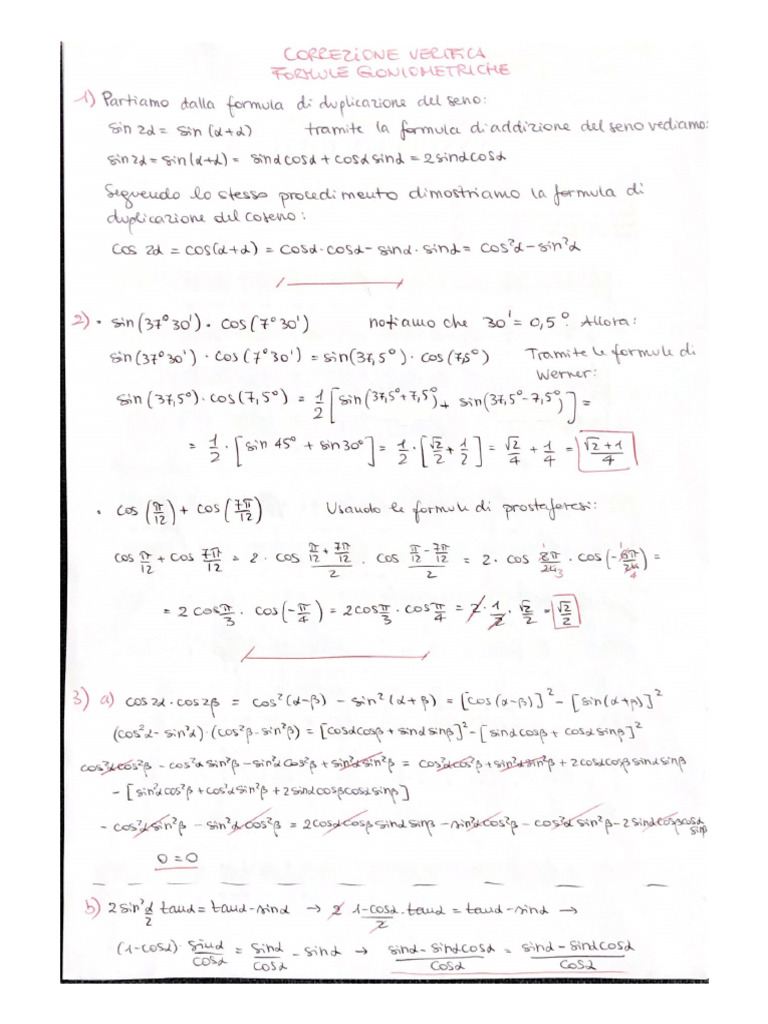 CORREZIONE VERIFICA
FORMULE GONIOMETRICHE
1) Partiamo dalla formula di duplicazione del seno:
sin 2α = sin (α+α) tramite la formula di addizione del seno vediamo:
sin 2α = sin(α+α) = sinα cosα + cosα sinα = 2 sinα cosα
Seguendo lo stesso procedimento dimostriamo la formula di
duplicazione del coseno:
cos 2α = cos(α+α) = cosα · cosα - sinα · sinα = cos²α - sin²α
2) • sin(37°30') · cos(7°30') notiamo che 30' = 0,5°. Allora:
sin(37°30') · cos(7°30') = sin(37,5°) · cos(7,5°) Tramite le formule di
Werner:
sin(37,5°) · cos(7,5°) = 1/2 [sin(37,5°+7,5°) + sin(37,5°-7,5°)] =
= 1/2 · [sin 45° + sin 30°] = 1/2 · [√2/2 + 1/2] = √2/4 + 1/4 = (√2+1)/4
• cos(π/12) + cos(7π/12) Usando le formule di prostaferesi:
cos π/12 + cos 7π/12 = 2 · cos (π/12 + 7π/12)/2 · cos (π/12 - 7π/12)/2 = 2 · cos 8π/24 3 · cos(-6π/24 4) =
= 2 cos π/3 · cos(-π/4) = 2 cos π/3 · cos π/4 = 2 · 1/2 · √2/2 = √2/2
3) a) cos 2α · cos 2β = cos²(α-β) - sin²(α+β) = [cos(α-β)]² - [sin(α+β)]²
(cos²α - sin²α) · (cos²β - sin²β) = [cosα cosβ + sinα sinβ]² - [sinα cosβ + cosα sinβ]²
cos²α cos²β - cos²α sin²β - sin²α cos²β + sin²α sin²β = cos²α cos²β + sin²α sin²β + 2 cosα cosβ sinα sinβ
- [sin²α cos²β + cos²α sin²β + 2 sinα cosβ cosα sinβ]
- cos²α sin²β - sin²α cos²β = 2 cosα cosβ sinα sinβ - sin²α cos²β - cos²α sin²β - 2 sinα cosβ cosα sinβ
0 = 0
b) 2 sin² α/2 tanα = tanα - sinα → 2 (1-cosα)/2 · tanα = tanα - sinα →
(1-cosα) · sinα/cosα = sinα/cosα - sinα → (sinα - sinα cosα)/cosα = (sinα - sinα cosα)/cosα